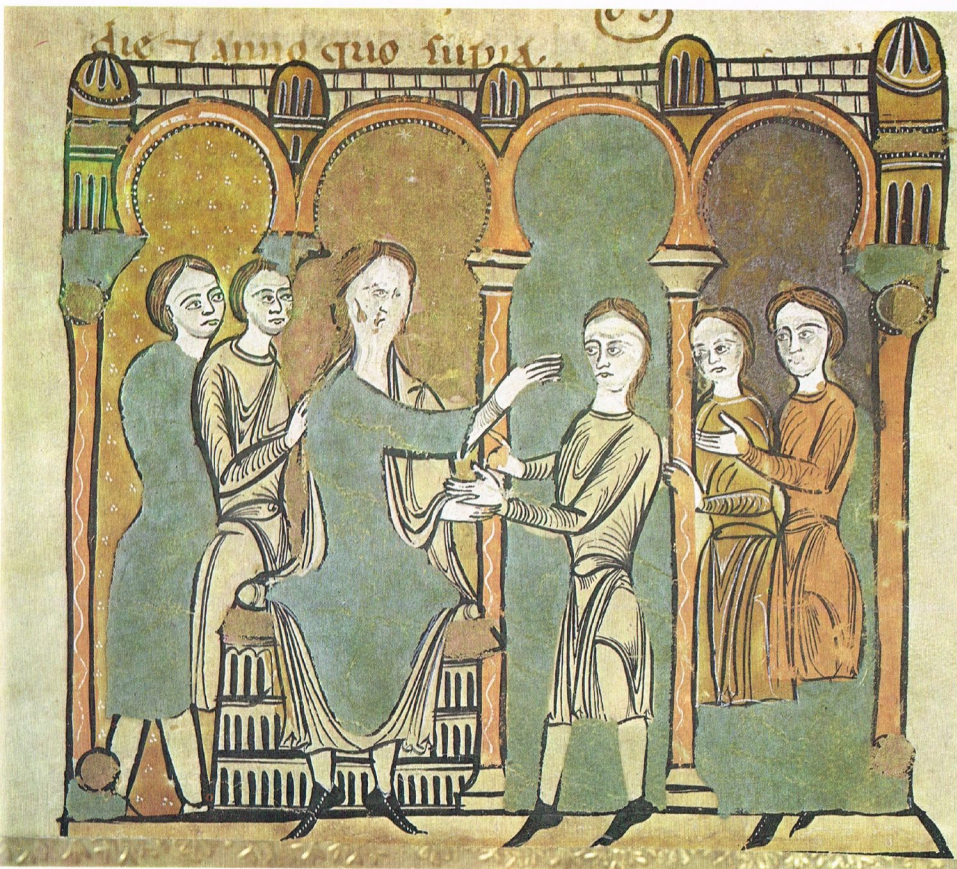 die ⁊ anno quo supra